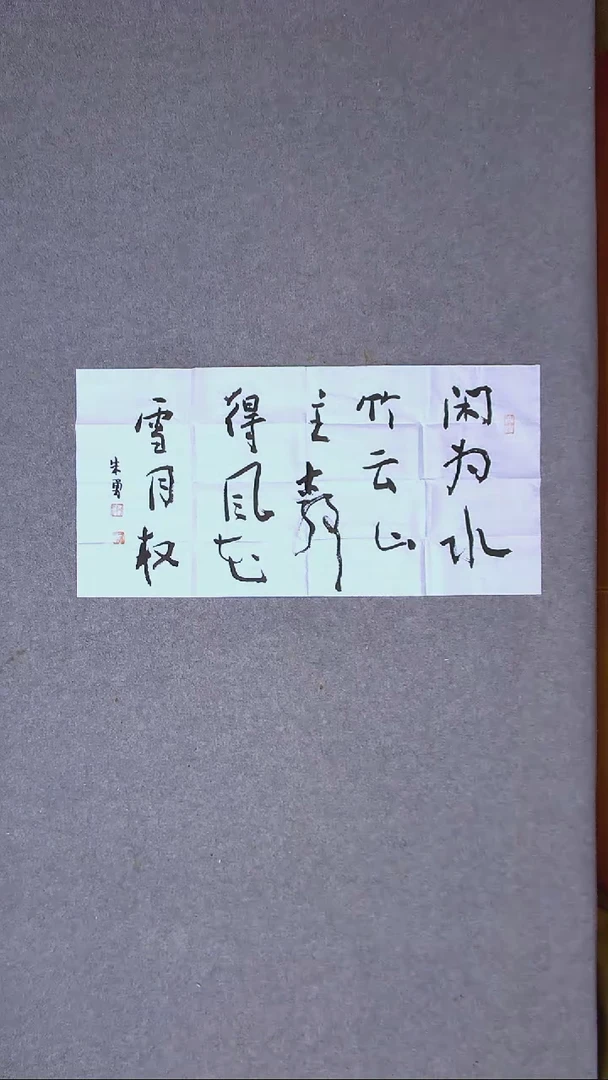 闲为水
竹云山
主静
得风花
雪月权
朱勇